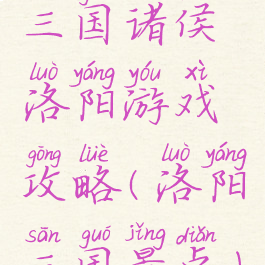 三国诸侯
luò yáng yóu xì
洛阳游戏
gōng lüè luò yáng
攻略(洛阳
sān guó jǐng diǎn
三国景点)